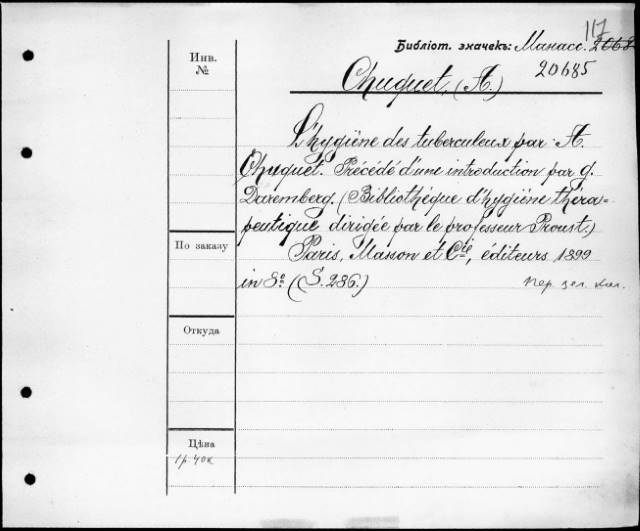 117
Библіот. значекъ: Манасс. 2068
20685
Инв.
№
Chuquet, (A.)
L'hygiène des tuberculeux par A.
Chuquet. Précédé d'une introduction par G.
Daremberg. (Bibliothèque d'hygiène théra-
peutique dirigée par le professeur Proust.)
Paris, Masson et Cie, éditeurs 1899
in 8o. (S. 286.)
пер. зел. кол.
По заказу
Откуда
Цѣна
1 р. 40 к